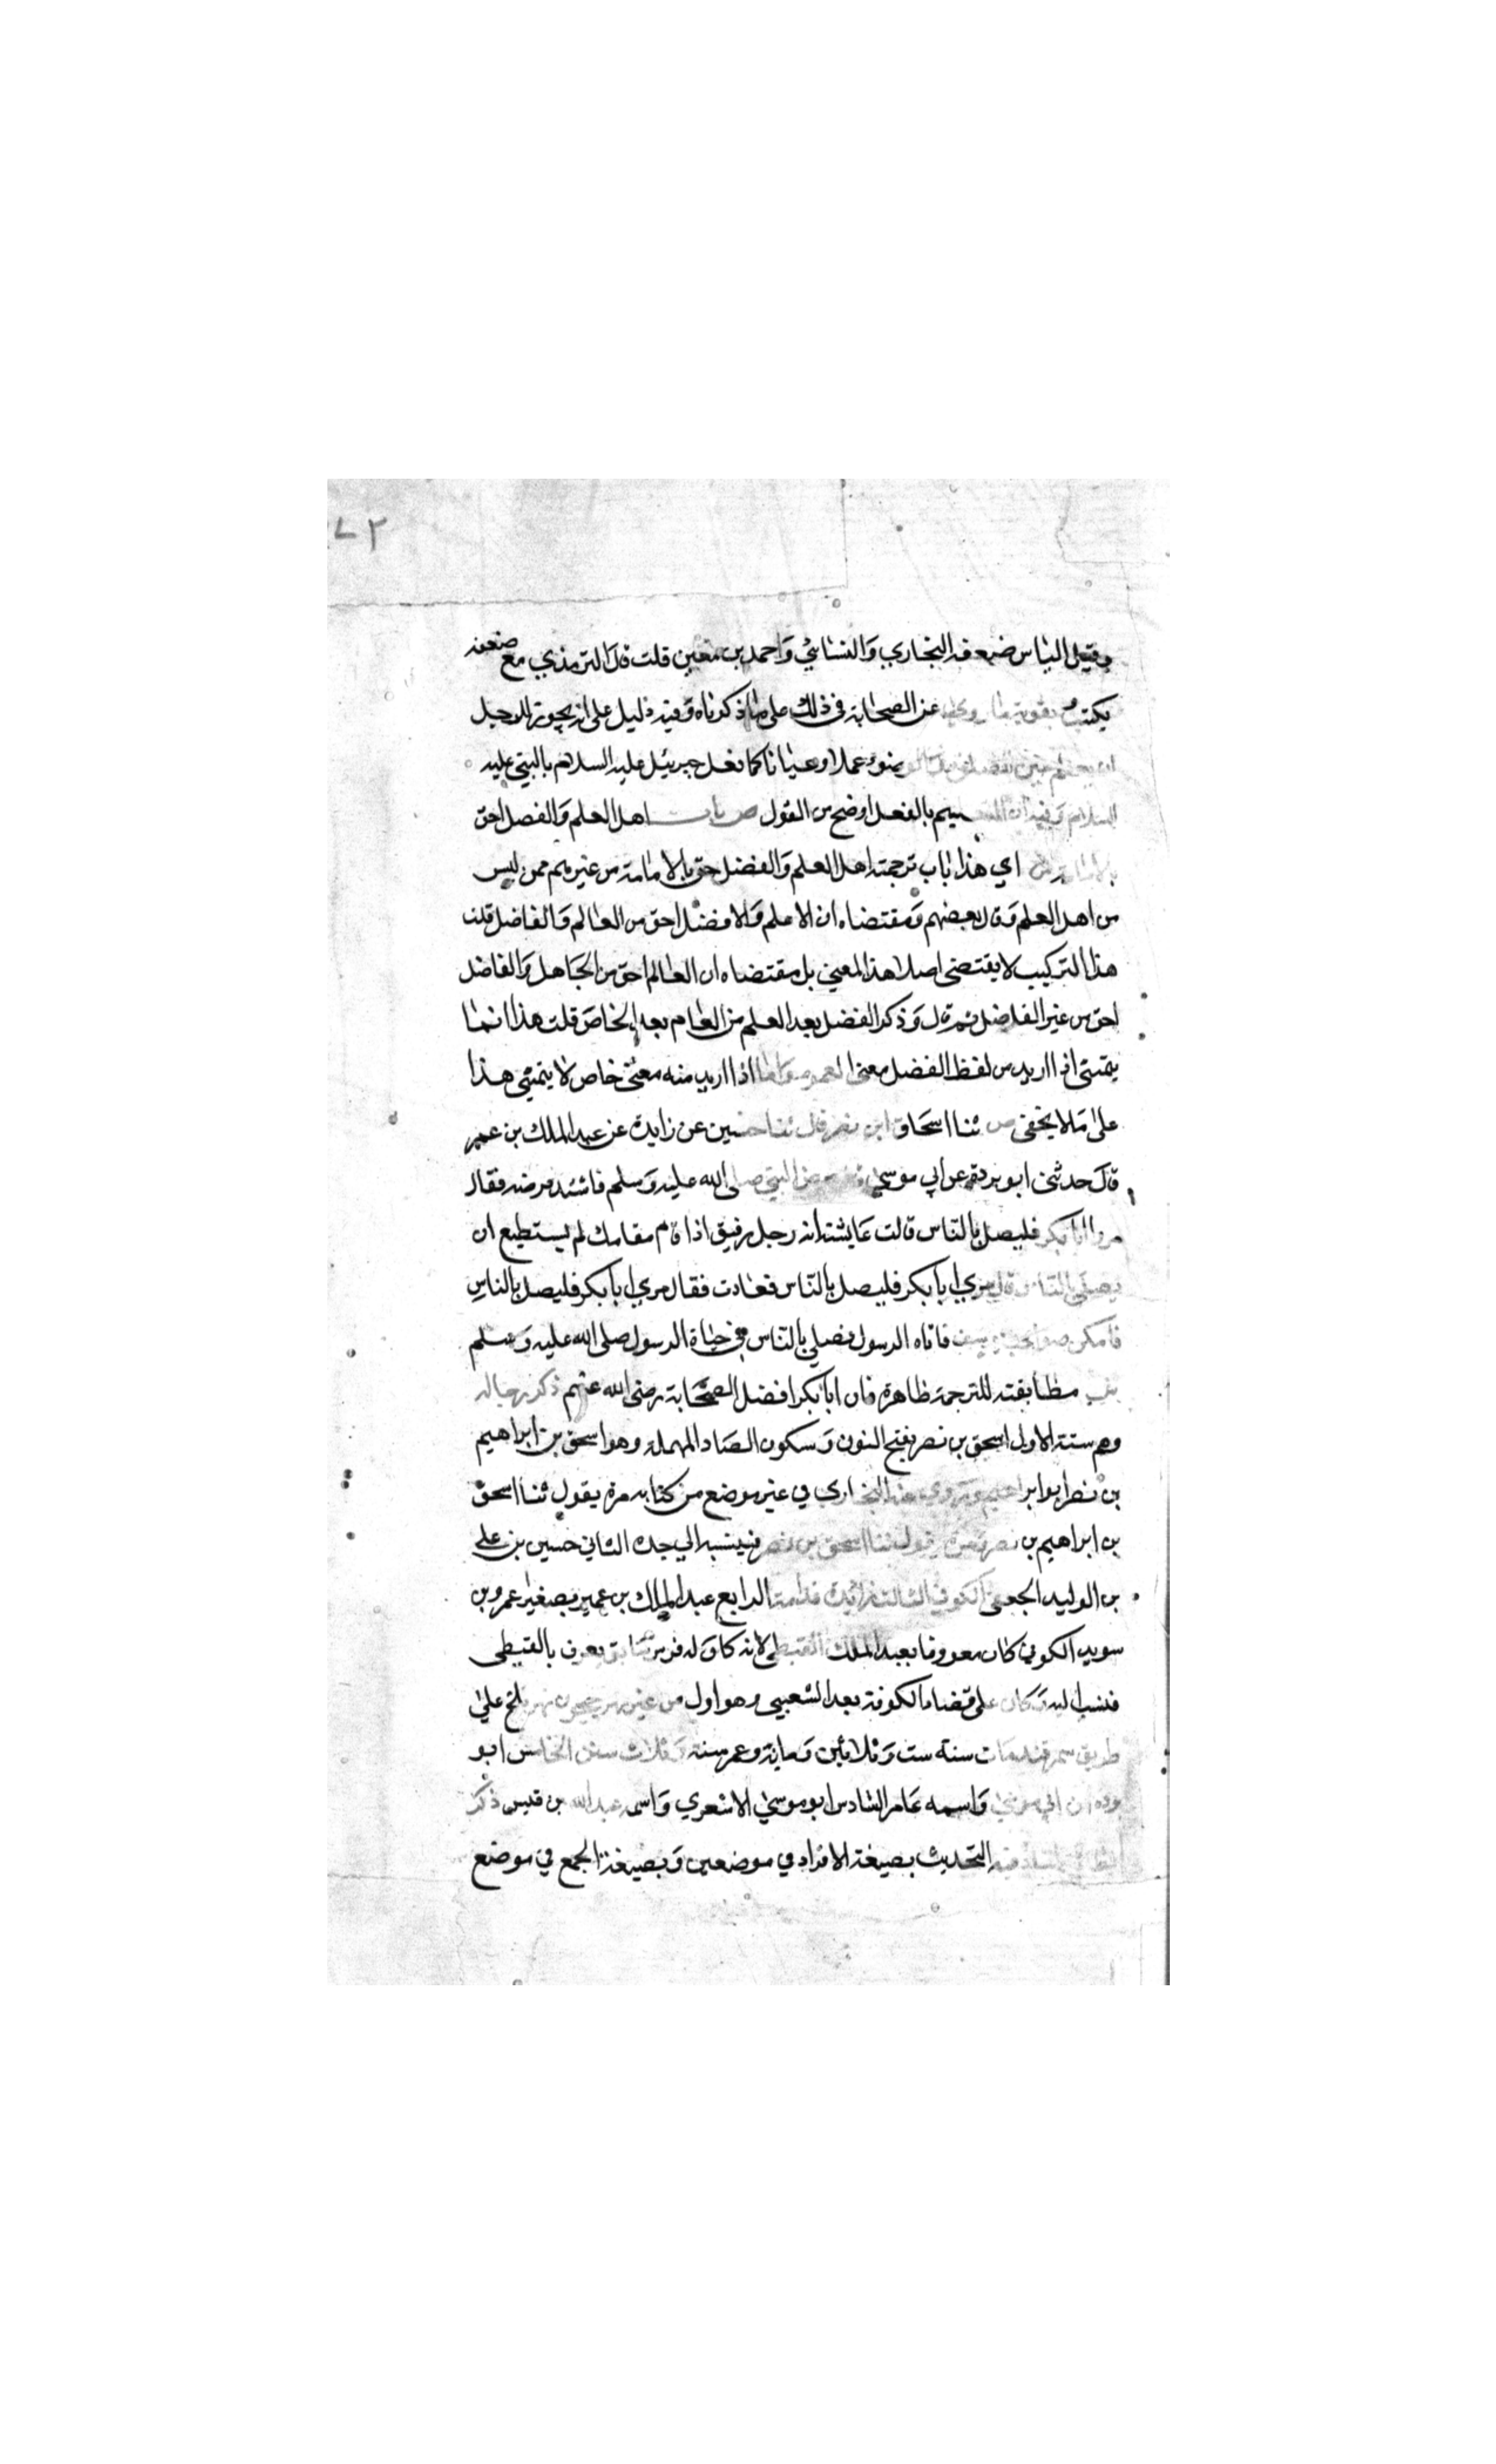 ٧٢
وقتيل الناس ضعفه البخاري والنسائي واحمد بن معين قلت قال الترمذي مع ضعفه
يكتب عن الصحابة في ذلك على ما ذكرناه وفيه دليل على انه يجوز للرجل
عملا وعيانا كما فعل جبريئل عليه السلام بالنبي عليه
السلام وفيه ان بالفعل اوضح من القول ص باب اهل العلم والفضل احق
بالامامة اي هذا باب ترجمته اهل العلم والفضل احق بالامامة من غيرهم ممن ليس
من اهل العلم وقال بعضهم ومقتضاه ان الاعلم والافضل احق من العالم والفاضل قلت
هذا التركيب لا يقتضي اصلا هذا المعني بل مقتضاه ان العالم احق من الجاهل والفاضل
احق من غير الفاضل ثم قال وذكر الفضل بعد العلم من العام بعد الخاص قلت هذا انما
يتمشى اذا اريد من لفظ الفضل معنى العموم واما اذا اريد منه معنى خاص لا يتمشى هذا
على ما لا يخفى ص ثنا اسحاق ابن نصر قال ثنا حسين عن زايدة عن عبد الملك بن عمير
قال حدثني ابو بردة عن ابي موسى مرض النبي صلى الله عليه وسلم فاشتد مرضه فقال
مروا ابا بكر فليصل بالناس قالت عايشة انه رجل رفيق اذا قام مقامك لم يستطيع ان
يصلي بالناس قال مري ابا بكر فليصل بالناس فعادت فقال مري ابا بكر فليصل بالناس
فانكن صواحب يوسف فاتاه الرسول فصلي بالناس في حياة الرسول صلى الله عليه وسلم
مطابقته للترجمة ظاهرة فان ابا بكر افضل الصحابة رضى الله عنهم ذكر رجاله
وهم ستة الاول اسحق بن نصر بفتح النون وسكون الصاد المهملة وهو اسحق بن ابراهيم
بن نصر ابو ابراهيم ويروي عنه البخاري في غير موضع من كتابه مرة يقول ثنا اسحق
بن ابراهيم بن نصر ومرة يقول ثنا اسحق بن نصر فينسبه الي جده الثاني حسين بن علي
بن الوليد الجعفي الكوفي الثالث زائدة بن قدامة الرابع عبد الملك بن عمير بصغير عمرو بن
سويد الكوفي كان معروفا بعبد الملك القبطي لانه كان له فرس سابق يعرف بالقبطى
فنسب اليه وكان على قضاء الكوفة بعد الشعبي وهو اول من عبر نهر جيحون نهر بلخ علي
طريق سمرقند مات سنة ست وثلاثين وماية وعمره سنة وثلاث سنن الخامس ابو
بردة بن ابي موسى واسمه عامر السادس ابو موسى الاشعري واسمه عبد الله بن قيس ذكر
لطائف اسناده فيه التحديث بصيغة الافراد في موضعين وبصيغة الجمع في موضع